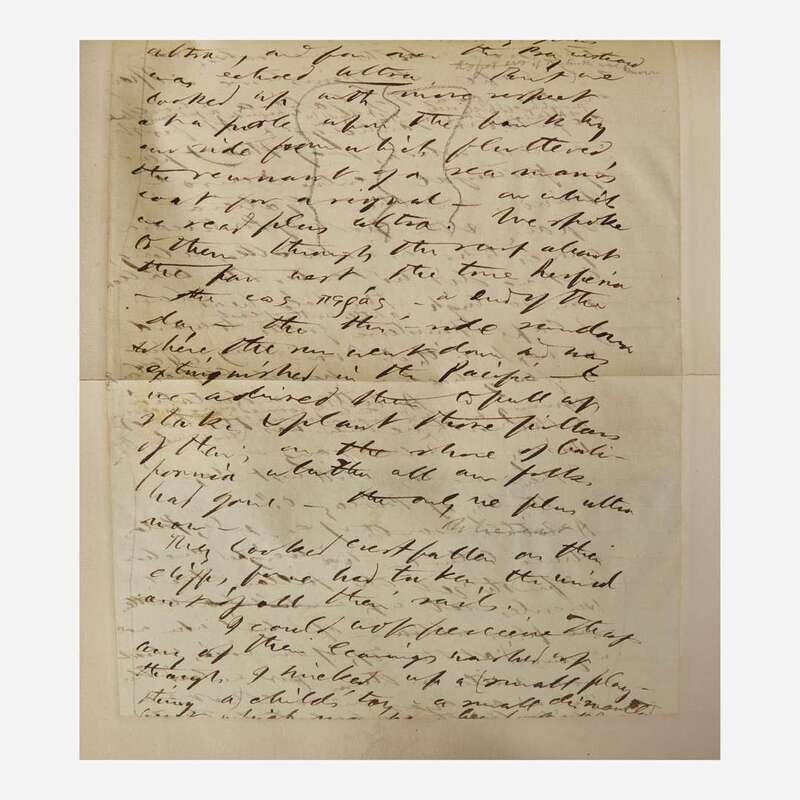 ultra, and far over the
was echoed ultra, But we
looked up with more respect
at a pole upon the bank by
our side from which fluttered
the remnant of a seaman's
coat for a signal — on which
we read plus ultra. We spoke
to them through the surf about
the far west the true Hesperia
— the εως πηγάς — a end of the
day — the this side sundown
where, the sun went down and was
extinguished in the Pacific &
we advised them to pull up
stake & plant those pillars
of theirs on the shore of Cali-
fornia whither all our folks
had gone — the only ne plus ultra
now —
They looked crestfallen on their
cliffs, for we had taken the wind
out of all their sails.
I could not perceive that
any of their leavings washed up
though I picked up a small play-
thing a child's toy — a small dismantled